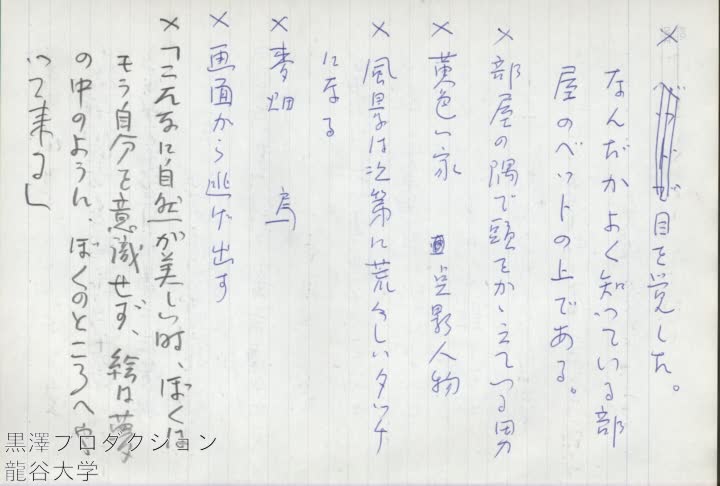 × 目を覚した。
なんだかよく知っている部
屋のベットの上である。
× 部屋の隅で頭をかゝえている男
× 黄色い家 点影人物
× 風景は次第に荒々しいタッチ
になる
× 麦畑 烏
× 画面から逃げ出す
×「こんなに自然が美しい時、ぼくは
もう自分を意識せず、絵は夢
の中のように、ぼくのところへや
って来る」
黒澤プロダクション
龍谷大学